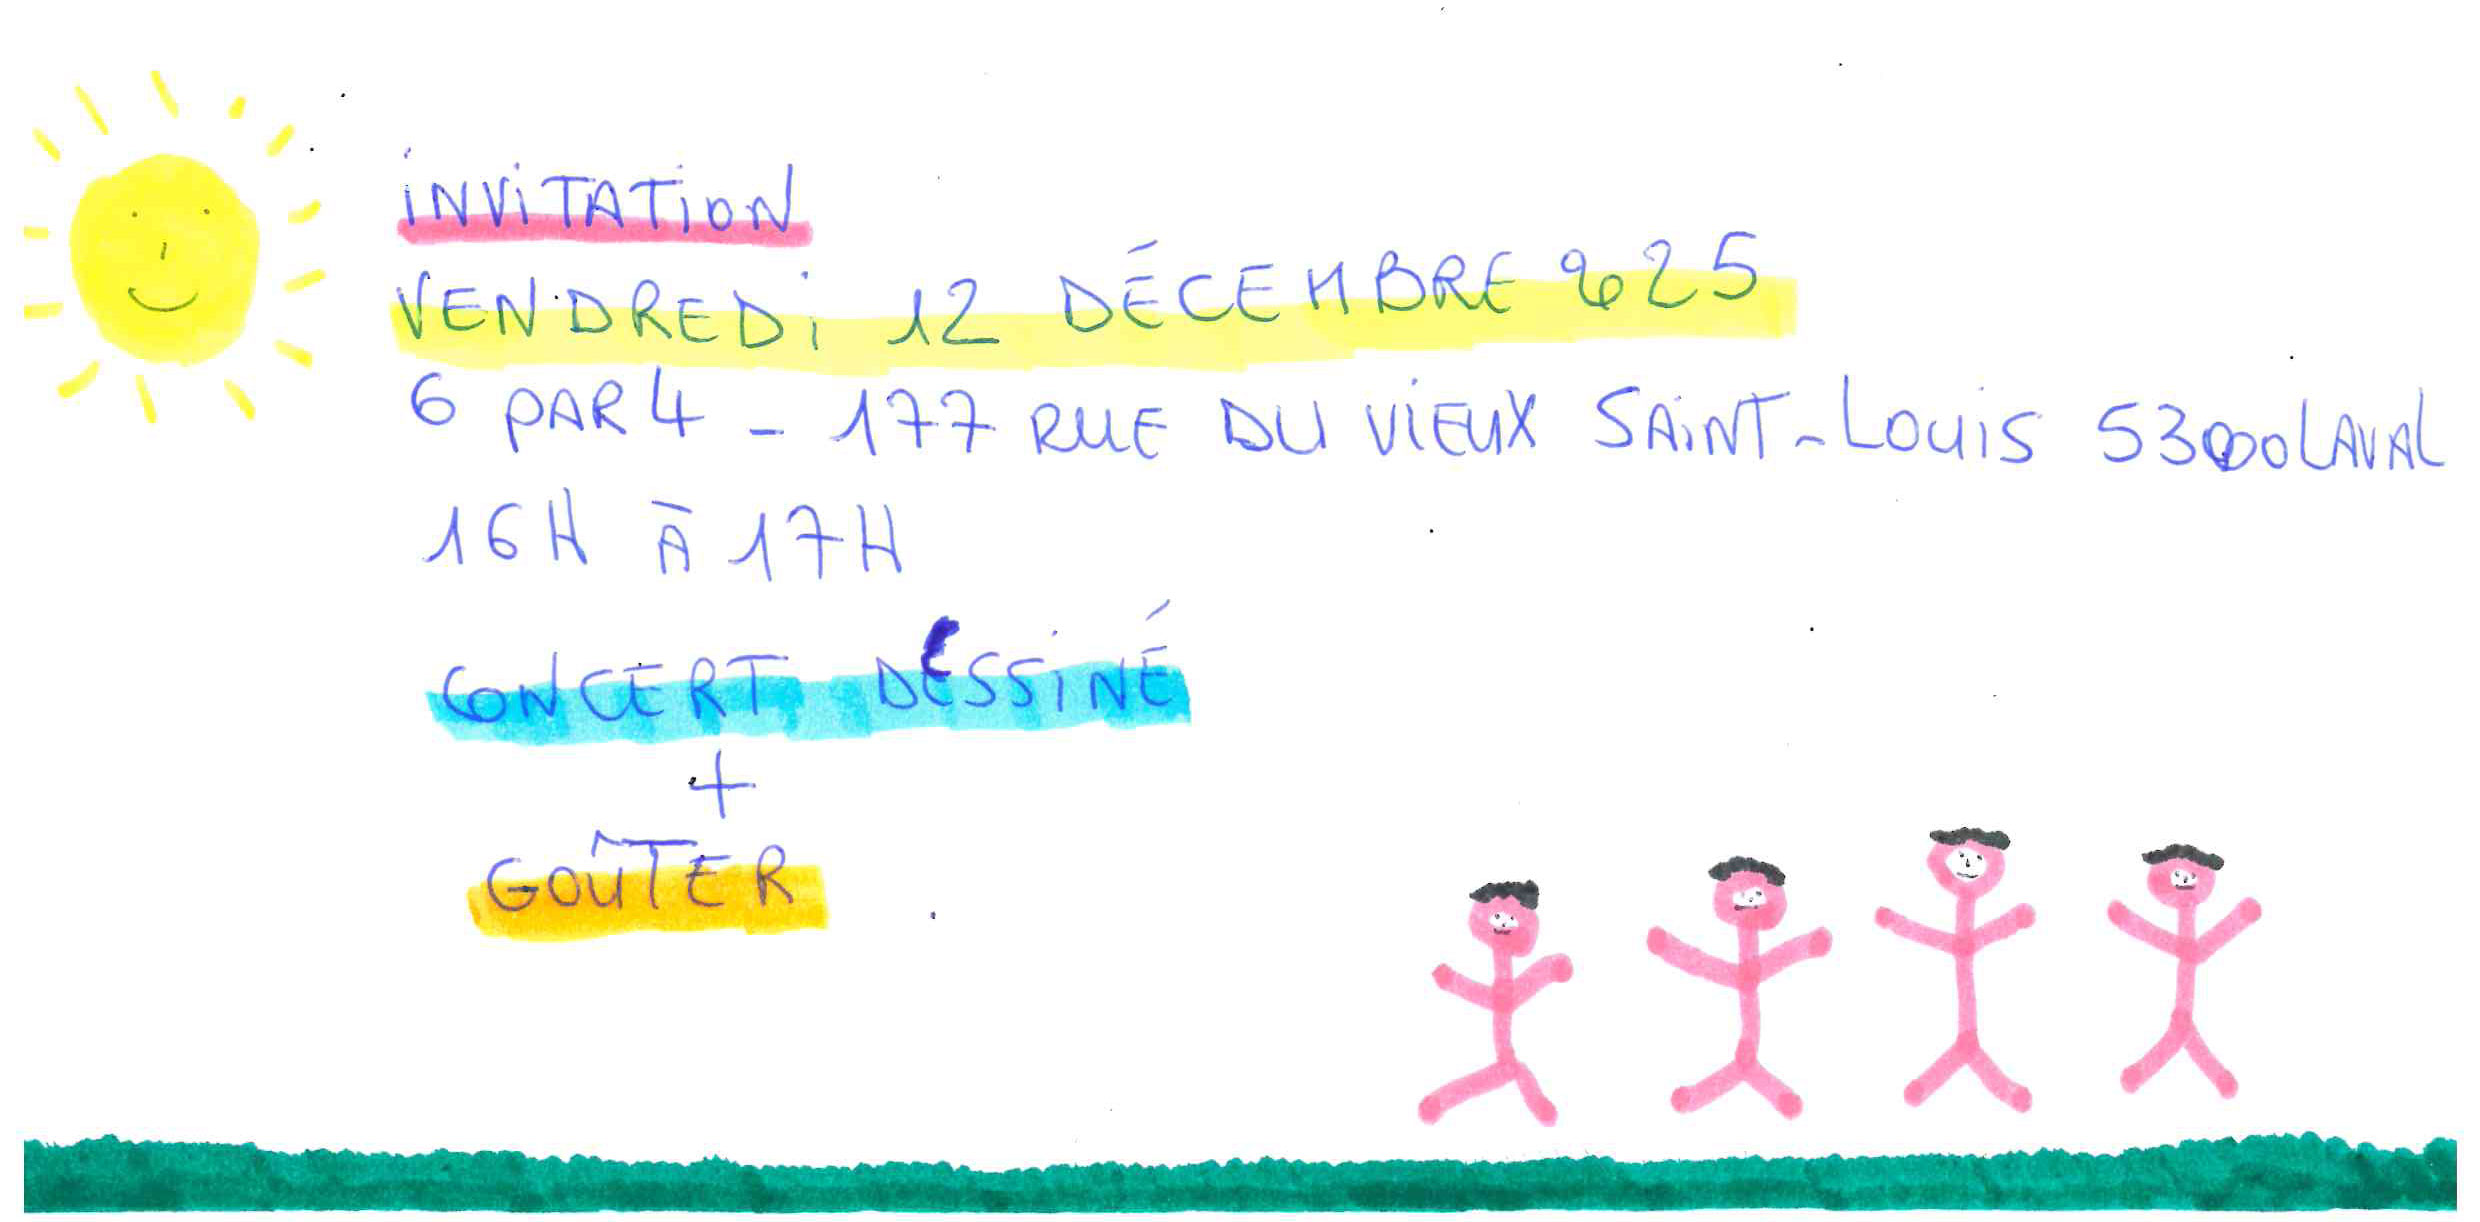 iNViTATiON
VENDREDi 12 DÉCEMBRE 2025
6 PAR 4 - 177 RUE DU VIEUX SAiNT-LOUiS 53000 LAVAL
16H À 17H
CONCERT DESSiNÉ
+
GOÛTER